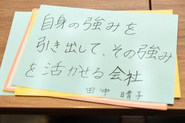 自身の強みを
引き出して、その強み
を活かせる会社
田中 晴子